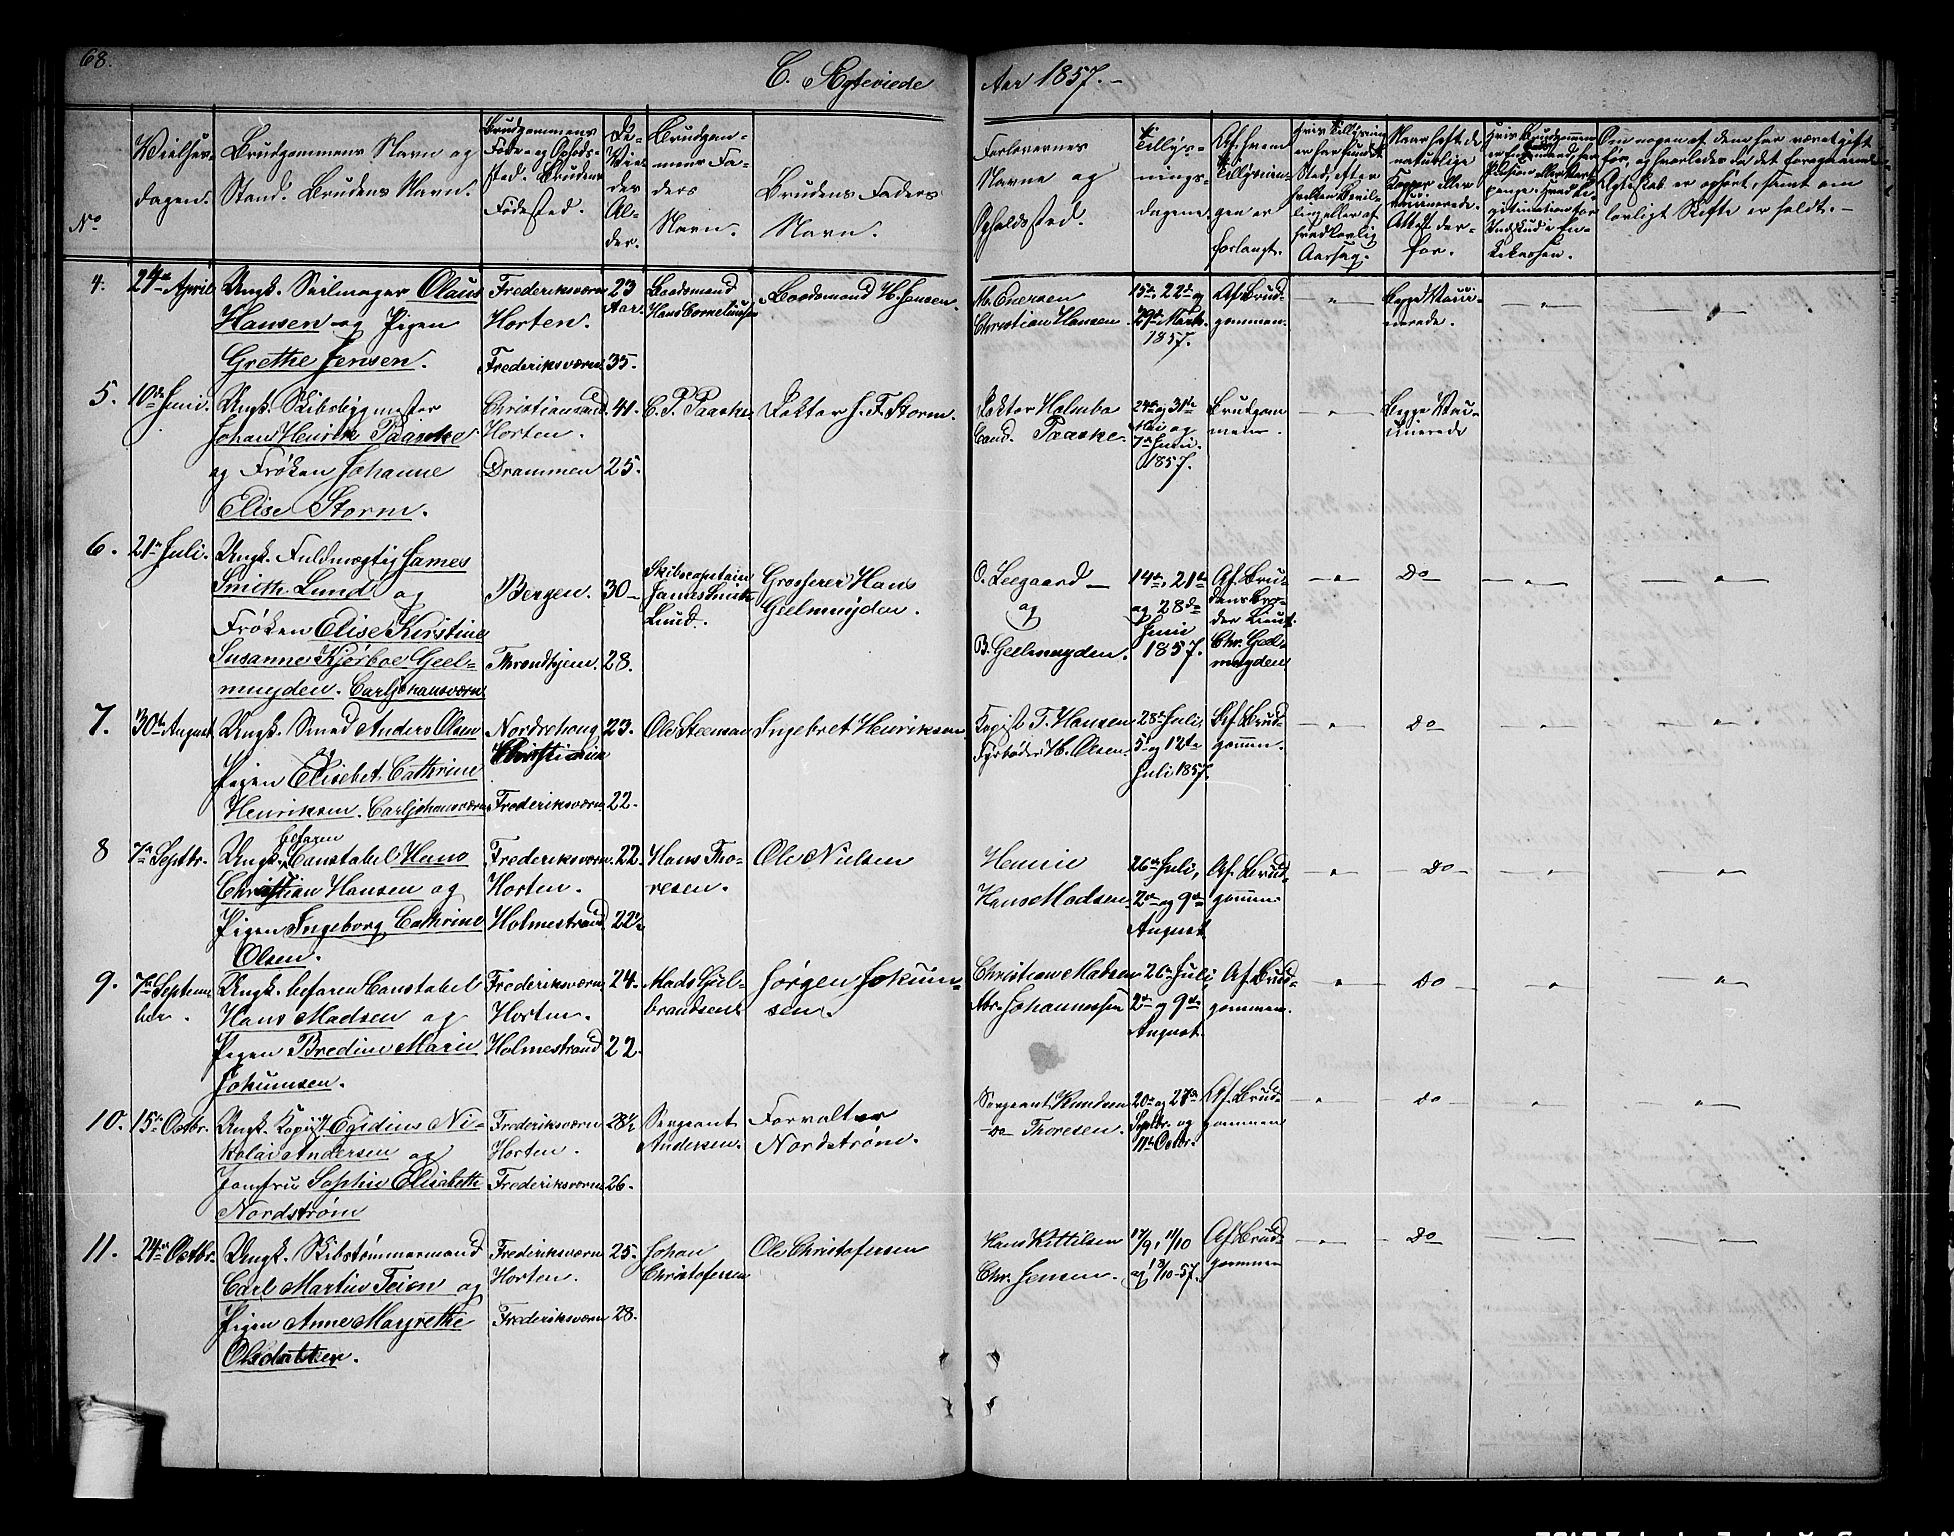 68.
C. Ægteviede
Aar 1857.-
No
Vielses-
dagen.
Brudgommens Navn og
Stand. Brudens Navn.
Brudgommens
Føde- og Opholds-
sted. Brudens
Fødested.
De
Vie-
des
Al-
der.
Brudgom-
mens Fa-
ders
Navn.
Brudens Faders
Navn.
Forlovernes
Navne og
Opholdssted.
Tillys-
nings-
dagene.
Af hvem
Tillysnin-
gen er
forlangt.
Naar hafte de
naturlige
Kopper eller
vaccinerede.
Attest der-
for.
Om nogen af dem har været gift
før, og hvorledes da det foregaaende
Ægteskab er ophørt, samt om
lovligt Skifte er holdt.-
4.
24de April
Ungk. Seilmager Olaus
Hansen og Pigen
Grethe Jensen.
Frederiksværn
Horten.
Frederiksværn
23
Aar.
35.
Baadsmand
Hans Corneliusen
Baadsmand H. Jensen.
M. Enersen
Christian Hansen
15de, 22de og
29de Marts
1857.
Af Brud-
gommen.
Begge Vacci-
nerede.
5.
10de Juni.
Ungk. Skibsbygmester
Johan Henrik Paaske
og Frøken Johanne
Elise Storm.
Christiansand
Horten.
Drammen
41.
25.
C. P. Paaske.
Doktor J. F. Storm.
Doktor Holmboe
Cand. Paaske.
24de og 31te
Mai og
7de Juni
1857.
Brudgom-
men.
Begge Vac-
cinerede
6.
21de Juli.
Ungk. Fuldmægtig James
Smith Lund og
Frøken Elise Kirstine
Susanne Kjerboe Geel-
muyden. Carljohansværn
Bergen.
Throndhjem.
30
28.
Skibscaptain
James Smith
Lund.
Grosserer Hans
Gielmuyden.
O. Leegaard
og
B. Geelmuyden.
14de, 21de
og 28de
Juni
1857.
Af Bru-
dens Bro-
der Lieut.
Chr. Geel-
muyden
Do
7.
30te August
Ungk. Smed Anders Olsen
og
Pigen Elisebet Cathrine
Henriksen. Carljohansværn
Nordrehoug
Christiania
Frederiksværn
23.
22.
Ole Steensen
Ingebret Henriksen
T. Hansen
Fyrbøder H. Olsen.
28de Juli
5te og 12te
Juli 1857.
Af Brud-
gommen.
Do
8
7de Septbr.
befaren
Ungk. Canstabel Hans
Christian Hansen og
Pigen Ingeborg Cathrine
Olsen.
Frederiksværn
Horten.
Holmestrand
22.
22½
Hans Tho-
resen.
Ole Nielsen
Hans Madsen.
26de Juli,
2den og 9de
August
Af Brud-
gommen
Do
9.
7de Septem-
ber.
Ungk. befaren Canstabel
Hans Madsen og
Pigen Bredine Marie
Jokumsen.
Frederiksværn
Horten.
Holmestrand
24.
22.
Mads Gul-
brandsen
Jørgen Jokum-
sen.
Christian Madsen
Abr. Johannessen
26de Juli
2den og 9de
August
Af Brud-
gommen.
Do
10.
15de Octbr.
Ungk. Kopiist Egidius Ni-
kolai Andersen og
Jomfru Sophie Elisabeth
Nordstrøm
Frederiksværn
Horten.
Frederiksværn
28½
26.
Sergeant
Andersen.
Forvalter
Nordstrøm.
Sergeant Knudsen
Do Thoresen.
20de og 27de
Septbr. og
11te Octbr.
Af Brud-
gommen
Do
11.
24de Octbr.
Ungk. Skibstømmermand
Carl Martin Teien og
Pigen Anne Margrethe
Frederiksværn
Horten.
Frederiksværn
25.
28.
Johan
Christofersen
Ole Christofersen
Hans Kittilsen
Chr. Jensen.
17/9, 11/10
og 18/10-57.
Af Brud-
gommen
Do